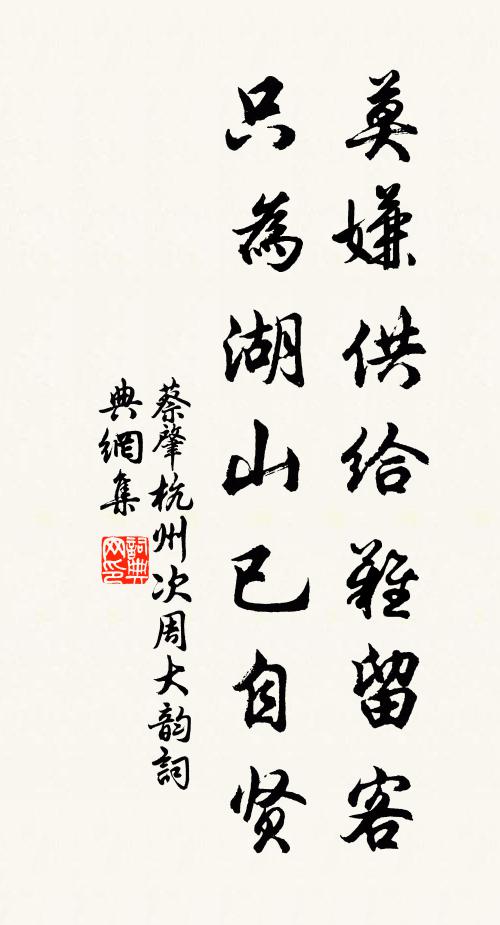 莫嫌供给难留客
只為湖山已自贤
蔡肇杭州次周大韵詞
典網集
詞典网印